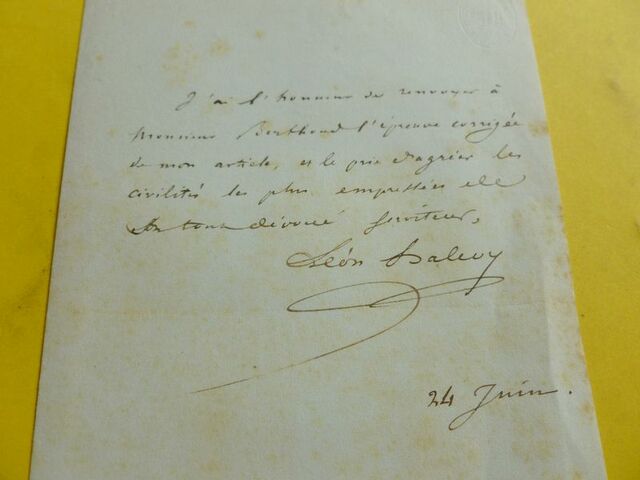 J'ai l'honneur de renvoyer à
Monsieur Berthoud l'épreuve corrigée
de mon article, et le prie d'agréer les
civilités les plus empressées de
son tout dévoué serviteur,
Léon Halevy
24 Juin.